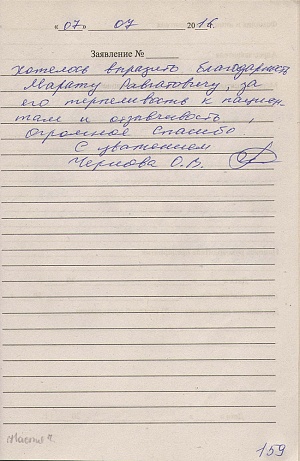 « 07 » 07 2016 г.
Заявление №
Хотелось выразить благодарность
Марату Равгатовичу, за
его терпеливость к пациен-
там и отзывчивость,
Огромное Спасибо
С уважением
Чернова О.В.
159